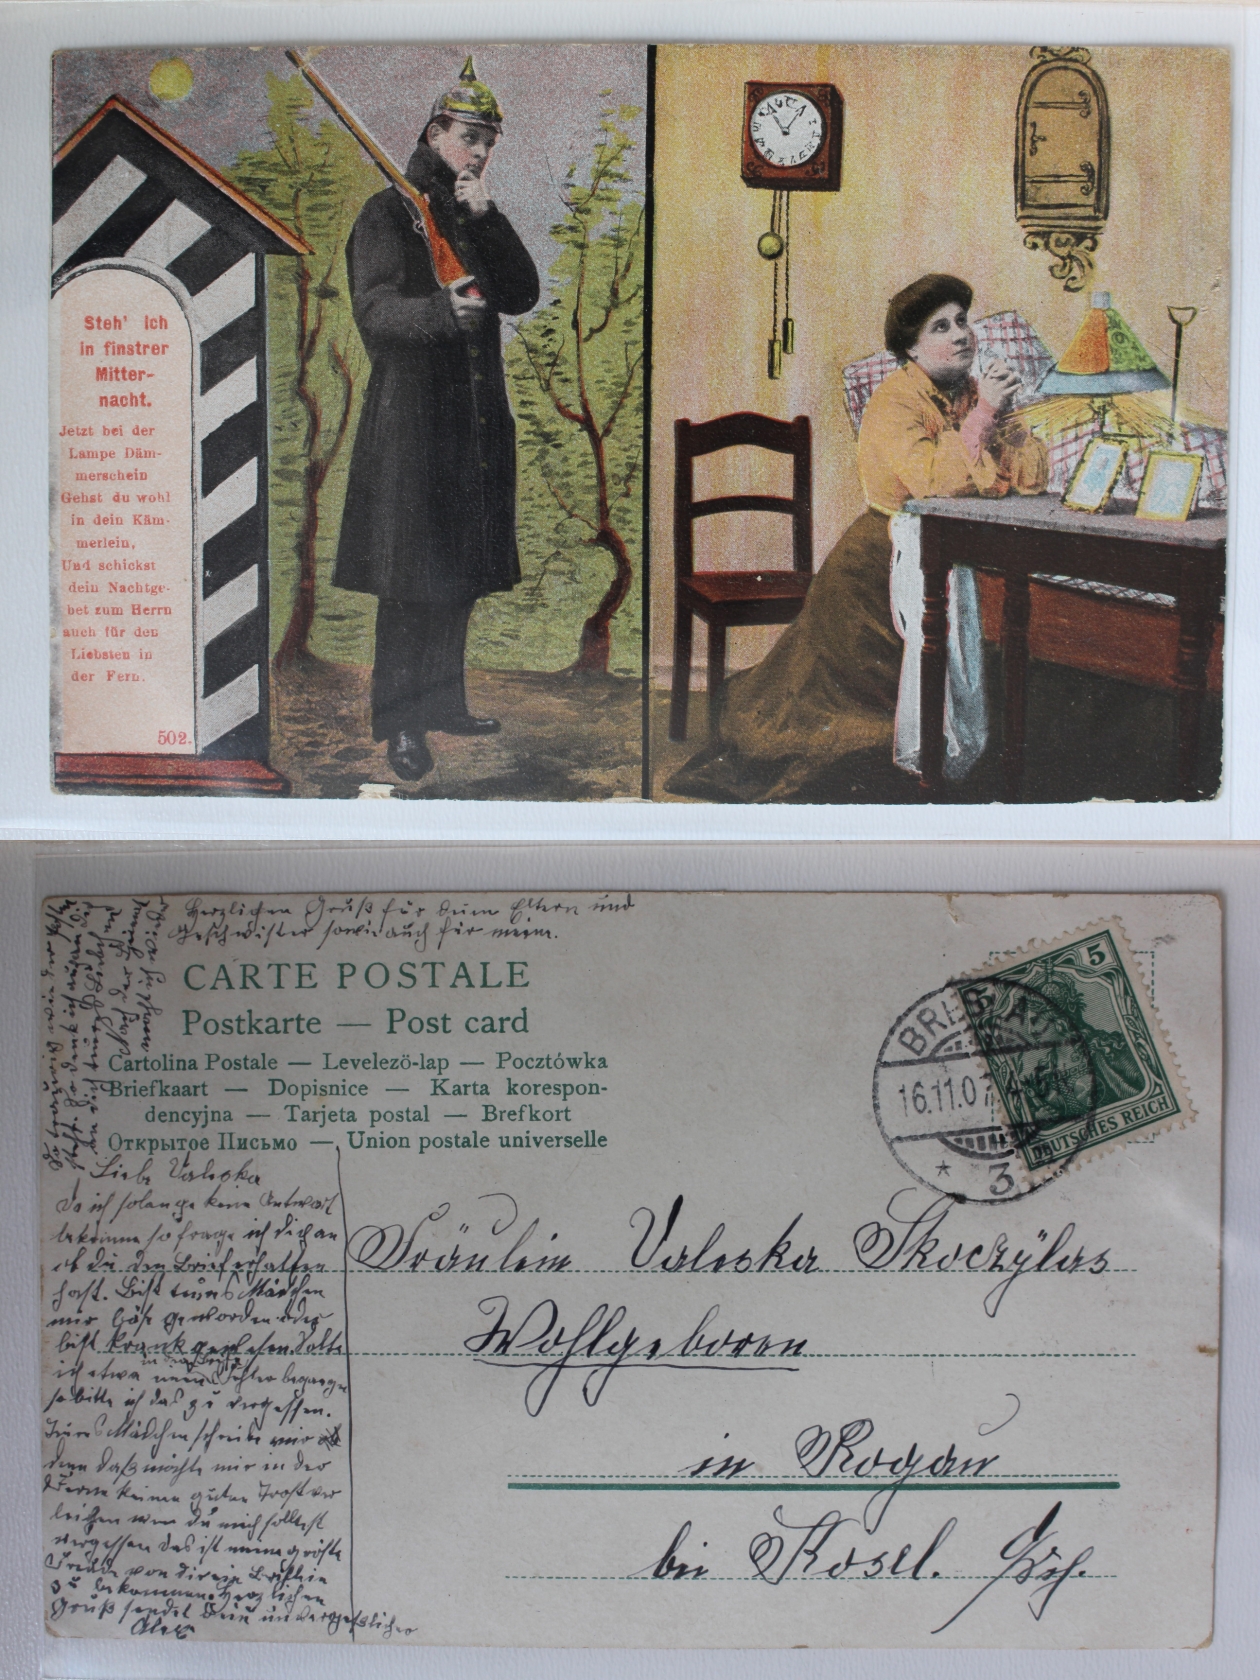 Steh' ich
in finstrer
Mitter-
nacht.
Jetzt bei der
Lampe Däm-
merschein
Gehst du wohl
in dein Käm-
merlein,
Und schickst
dein Nachtge-
bet zum Herrn
auch für den
Liebsten in
der Fern.
502.
Herzlichen Gruß für deine Eltern und
Geschwister sowie auch für
CARTE POSTALE
Postkarte — Post card
Cartolina Postale — Levelezö-lap — Pocztówka
Briefkaart — Dopisnice — Karta korespon-
dencyjna — Tarjeta postal — Brefkort
Открытое Письмо — Union postale universelle
5
DEUTSCHES REICH
BRESLAU
16.11.0
3
Liebe Valeska
Da ich solange keine Antwort
bekomme so frage ich dich an
ob du den Brief erhalten
hast. Bist Mädchen
mir böse geworden oder
bist krank gewesen. Sollte
ich etwa Fehler begangen
so bitte ich das zu vergessen.
Mädchen schreibe mir
denn daß möchte mir in der
Ferne keinen guten Trost ver
leihen wen du mich solltest
vergessen das ist meine größte
Freude von dir ein Brieflein
zu bekommen. Herzlichen
Gruß sendet Dein unvergeßlicher
Alex
Fräulein Valeska Skoczylas
Wohlgeboren
in Rogau
bei Kosel. O/Sch.